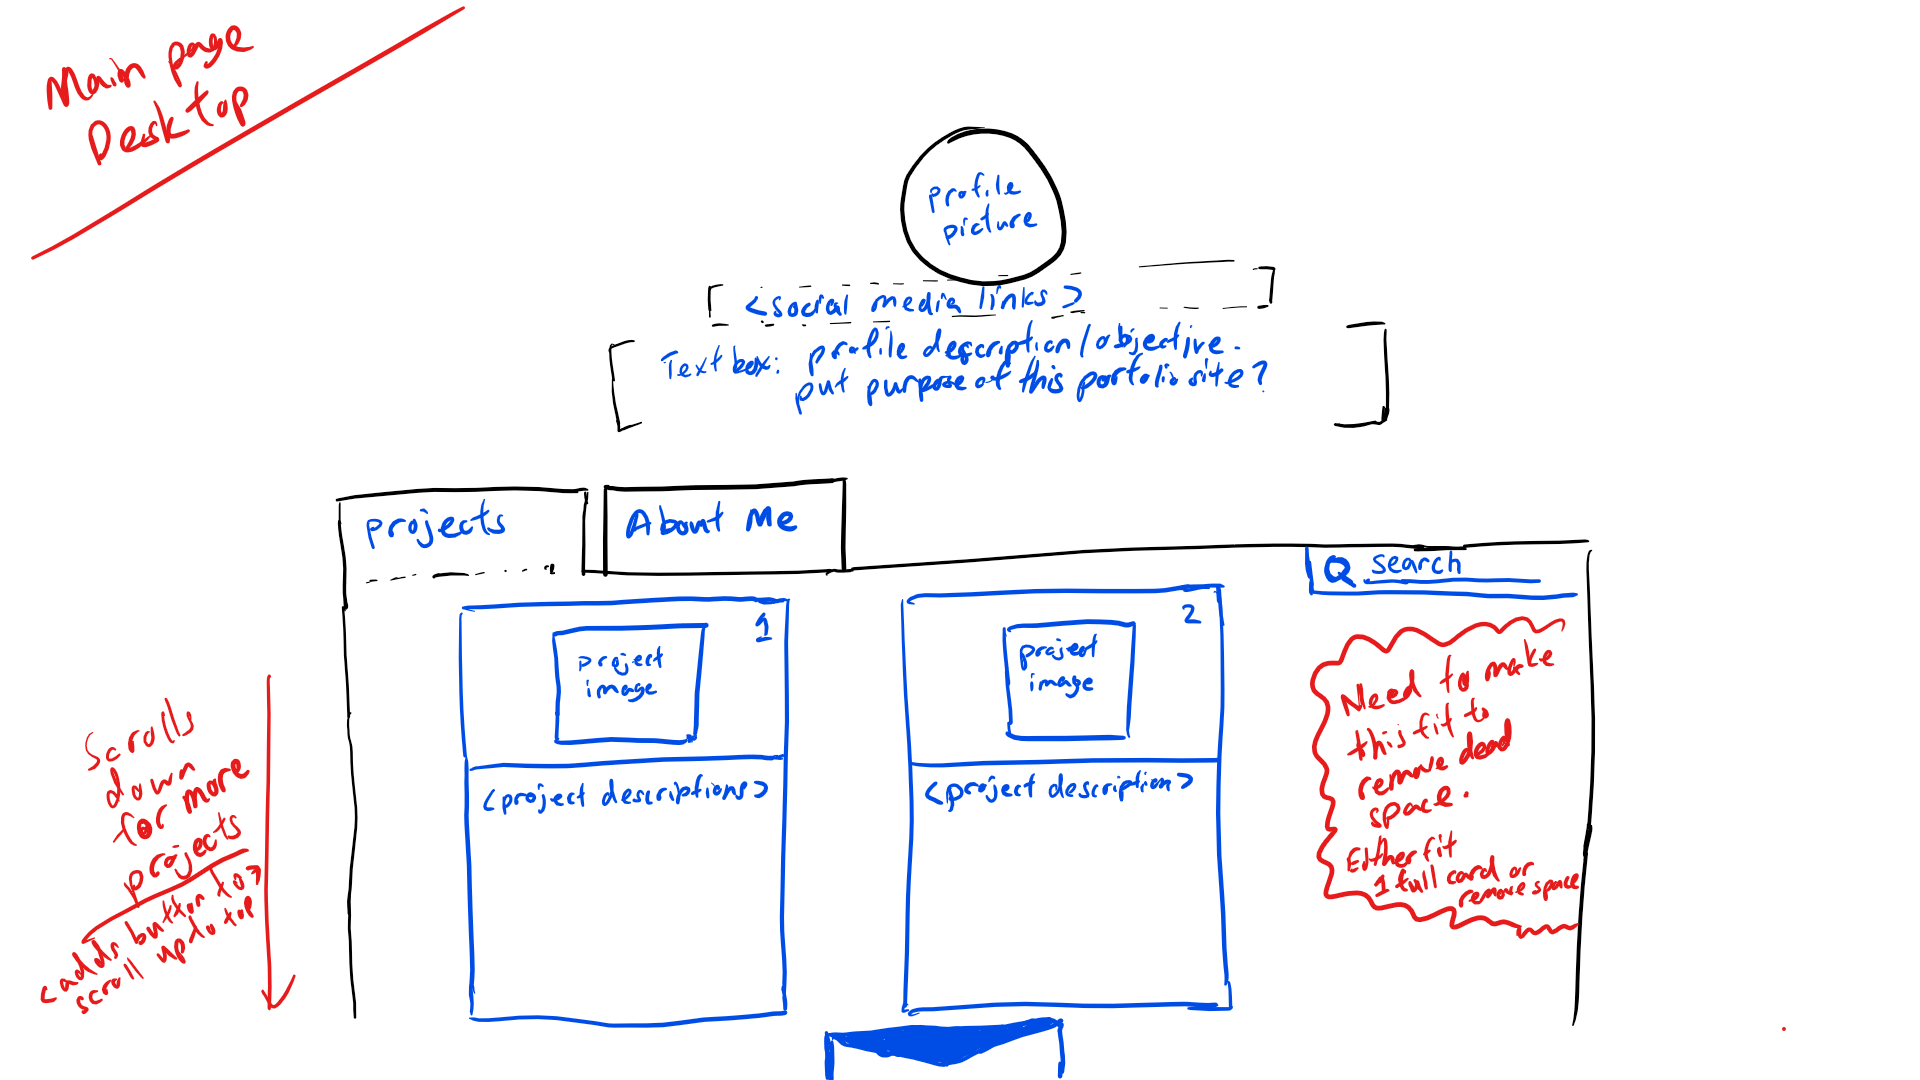 Main page
Desktop
profile
picture
<social media links>
Text box: profile description/objective.
put purpose of this portfolio site?
projects
About Me
Q search
1
project
image
<project descriptions>
2
project
image
<project description>
Need to make
this fit to
remove dead
space.
Either fit
1 full card or
remove space
Scrolls
down
for more
projects
<adds button to>
scroll up to top